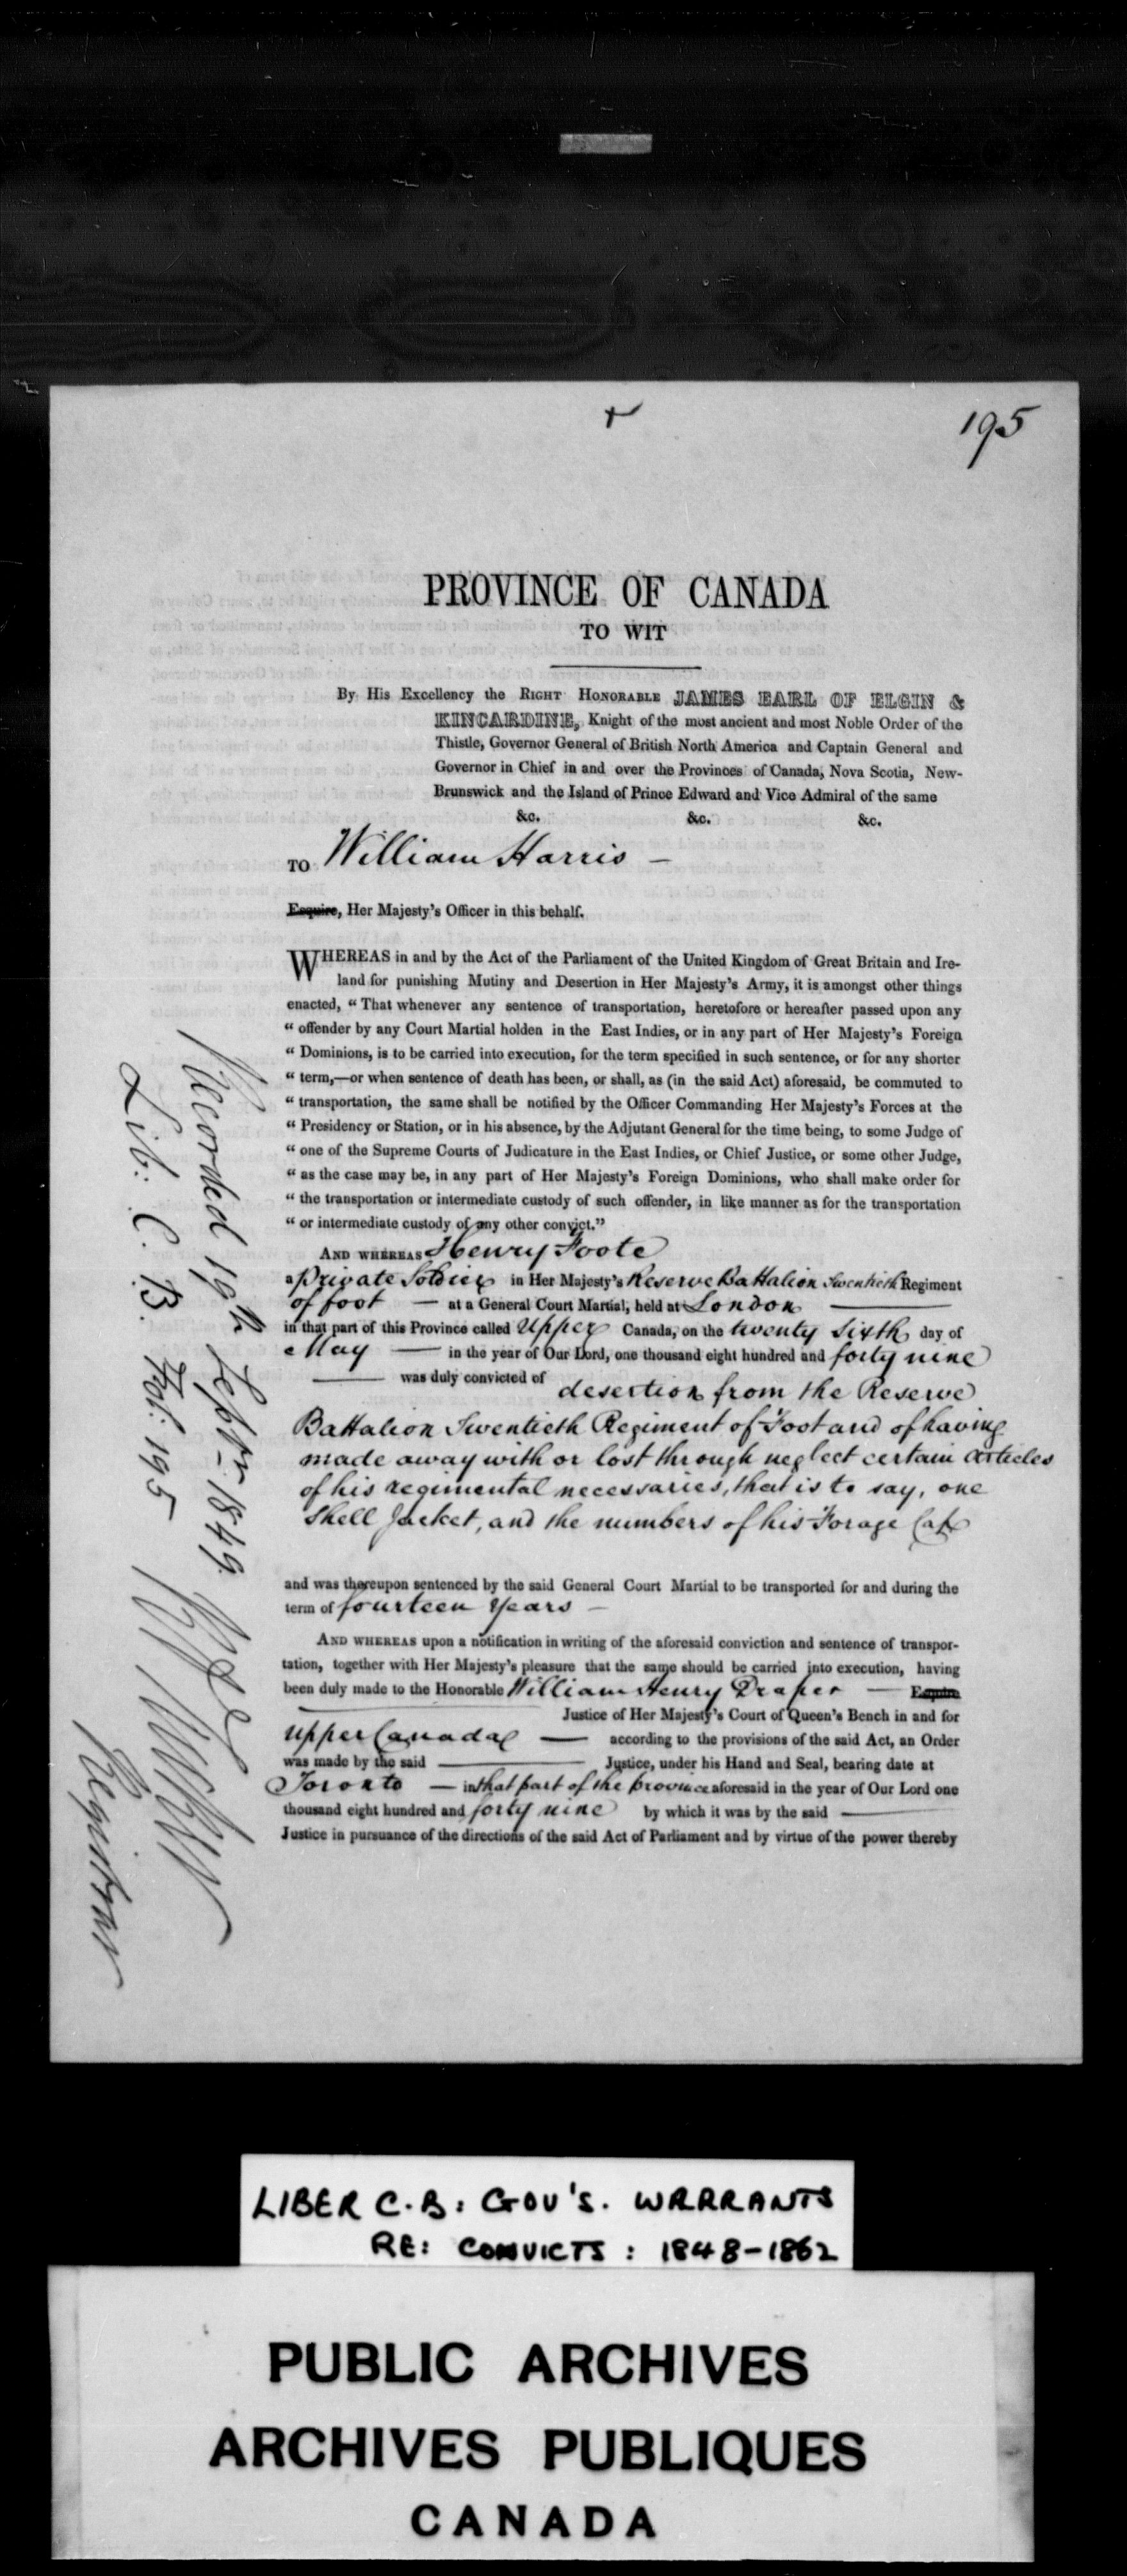 195
PROVINCE OF CANADA
TO WIT
By His Excellency the RIGHT HONORABLE JAMES EARL OF ELGIN &
KINCARDINE, Knight of the most ancient and most Noble Order of the
Thistle, Governor General of British North America and Captain General and
Governor in Chief in and over the Provinces of Canada, Nova Scotia, New-
Brunswick and the Island of Prince Edward and Vice Admiral of the same
&c. &c. &c.
TO William Harris —
Esquire, Her Majesty's Officer in this behalf.
WHEREAS in and by the Act of the Parliament of the United Kingdom of Great Britain and Ire-
land for punishing Mutiny and Desertion in Her Majesty's Army, it is amongst other things
enacted, “ That whenever any sentence of transportation, heretofore or hereafter passed upon any
“ offender by any Court Martial holden in the East Indies, or in any part of Her Majesty's Foreign
“ Dominions, is to be carried into execution, for the term specified in such sentence, or for any shorter
“ term,—or when sentence of death has been, or shall, as (in the said Act) aforesaid, be commuted to
“ transportation, the same shall be notified by the Officer Commanding Her Majesty's Forces at the
“ Presidency or Station, or in his absence, by the Adjutant General for the time being, to some Judge of
“ one of the Supreme Courts of Judicature in the East Indies, or Chief Justice, or some other Judge,
“ as the case may be, in any part of Her Majesty's Foreign Dominions, who shall make order for
“ the transportation or intermediate custody of such offender, in like manner as for the transportation
“ or intermediate custody of any other convict.”
AND WHEREAS Henry Foote
a Private Soldier in Her Majesty's Reserve Battalion Twentieth Regiment
of foot — at a General Court Martial, held at London —
in that part of this Province called Upper Canada, on the twenty sixth day of
May — in the year of Our Lord, one thousand eight hundred and forty nine
— was duly convicted of desertion from the Reserve
Battalion Twentieth Regiment of Foot and of having
made away with or lost through neglect certain articles
of his regimental necessaries, that is to say, one
Shell Jacket, and the numbers of his Forage Cap
and was thereupon sentenced by the said General Court Martial to be transported for and during the
term of fourteen Years —
AND WHEREAS upon a notification in writing of the aforesaid conviction and sentence of transpor-
tation, together with Her Majesty's pleasure that the same should be carried into execution, having
been duly made to the Honorable William Henry Draper — Esquire
Justice of Her Majesty's Court of Queen's Bench in and for
Upper Canada — according to the provisions of the said Act, an Order
was made by the said — Justice, under his Hand and Seal, bearing date at
Toronto — in that part of the province aforesaid in the year of Our Lord one
thousand eight hundred and forty nine by which it was by the said —
Justice in pursuance of the directions of the said Act of Parliament and by virtue of the power thereby
Recorded 19th Septr. 1849
Lib: C. B. Fol: 195
Registrar
LIBER C.B: GOV'S. WARRANTS
RE: CONVICTS: 1848-1862
PUBLIC ARCHIVES
ARCHIVES PUBLIQUES
CANADA